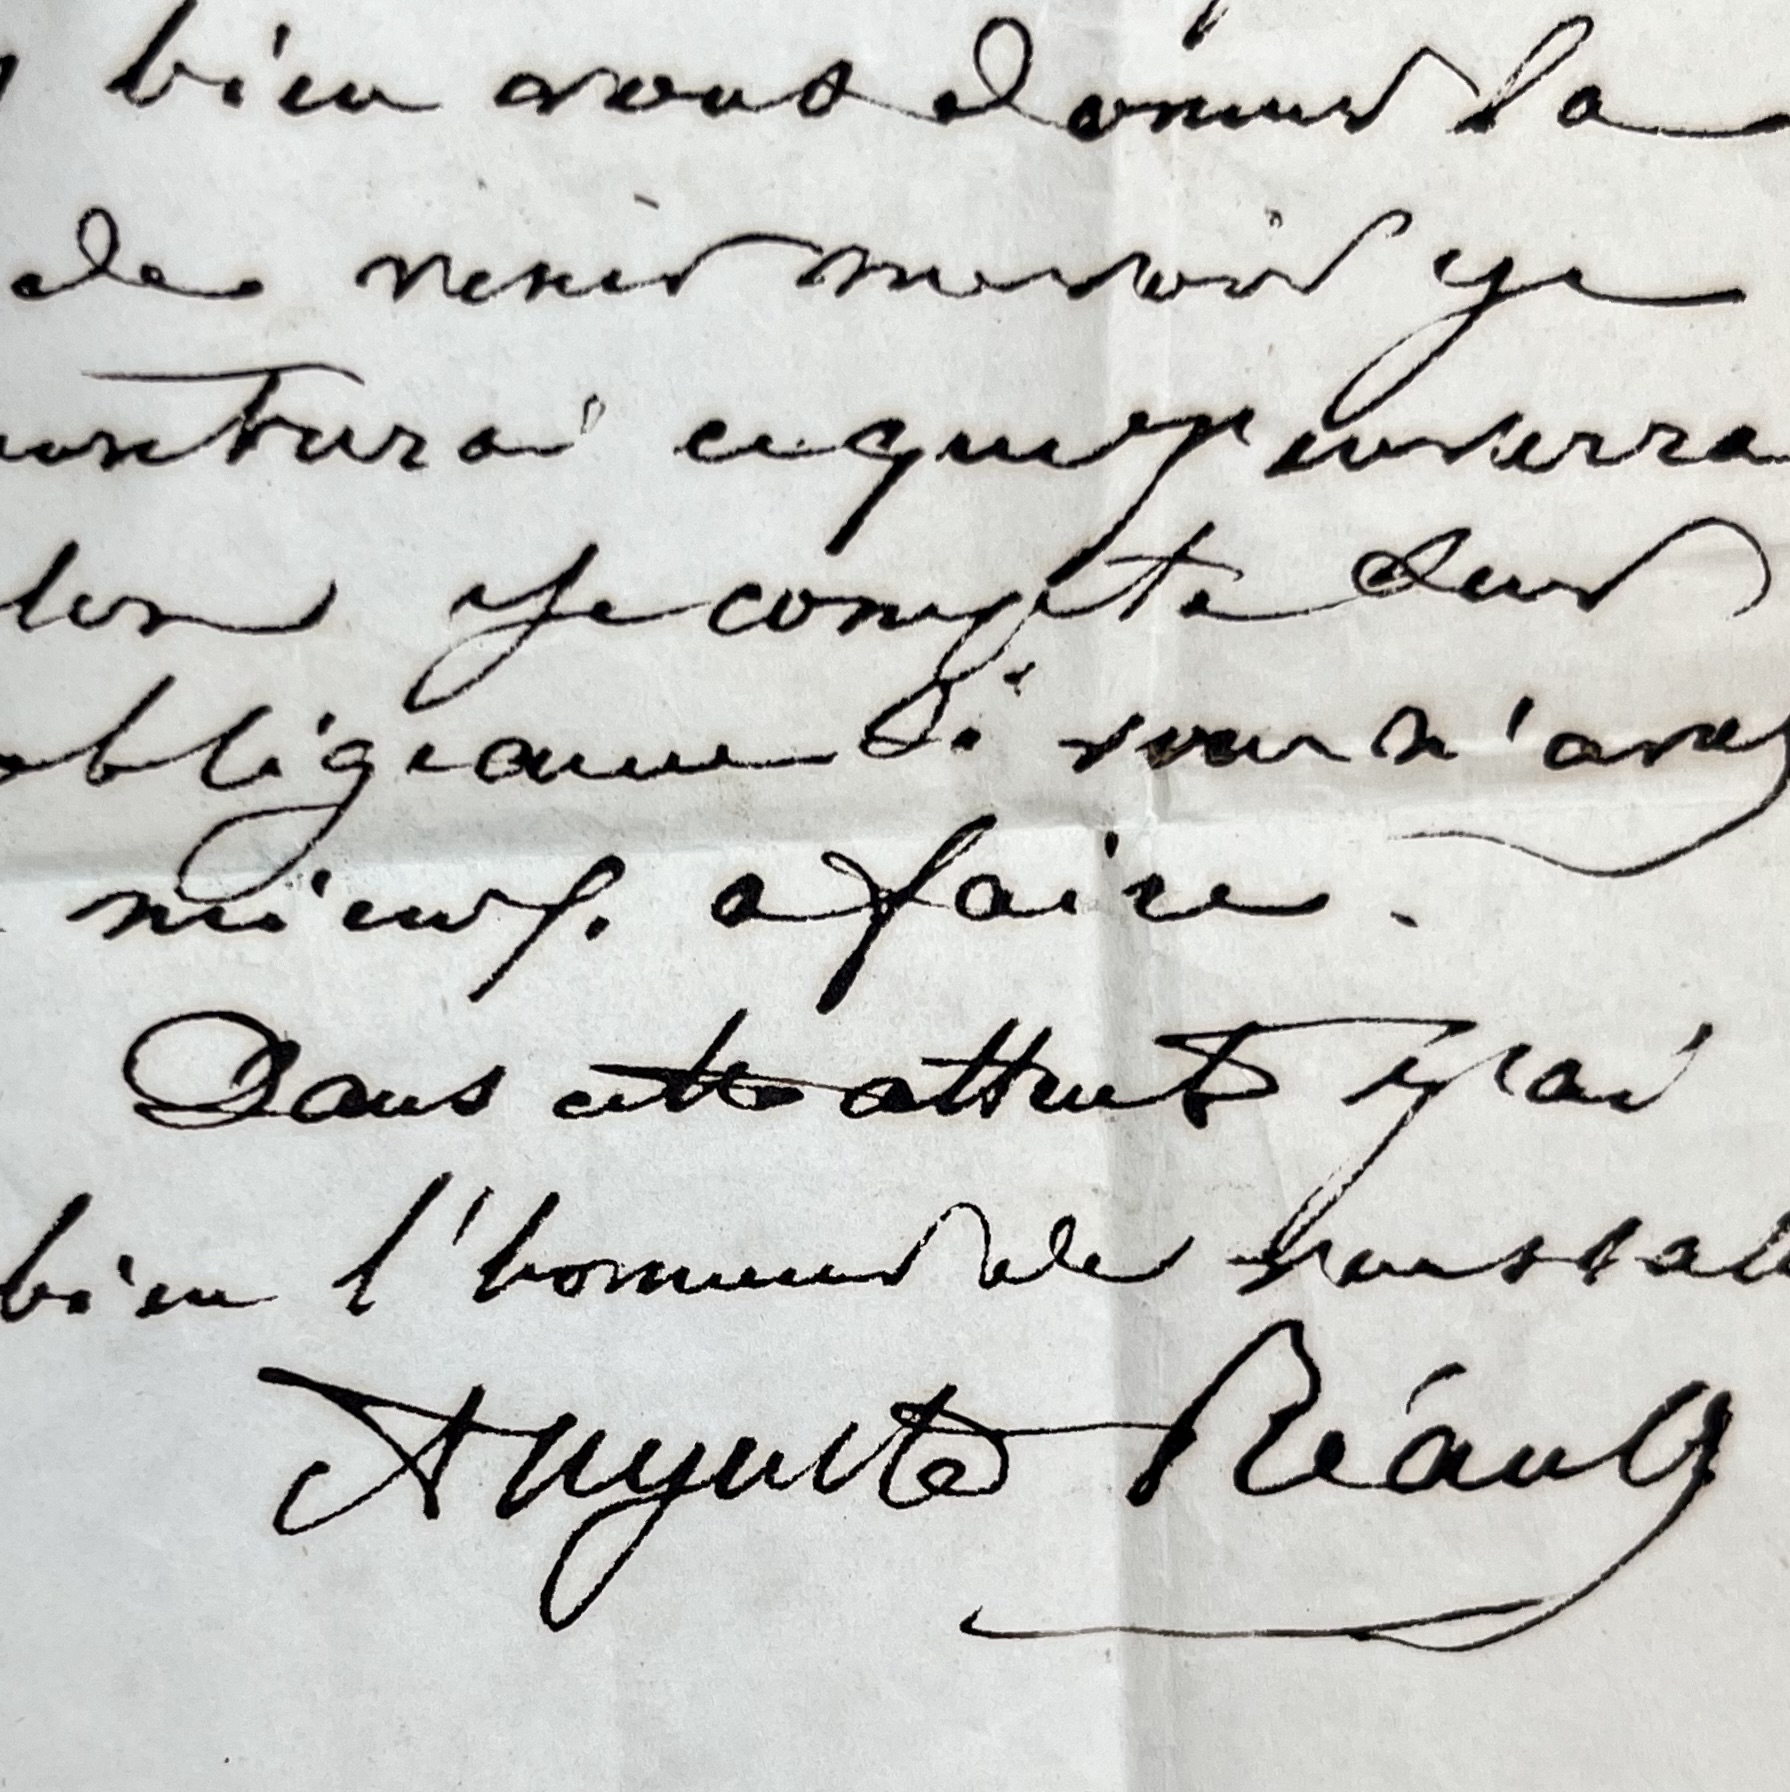 bien vous donner la
de venir me voir je
conterai ce qui en sera
je compte sur
obligeance si vous n'avez
mieux. a faire.
Dans cette attente j'ai
bien l'honneur de vous sal
Auguste Réault